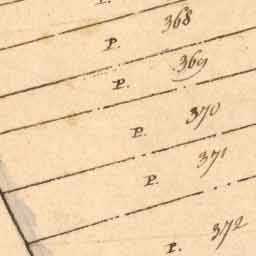 P.
P. 368
P. 369
P. 370
P. 371
P. 372